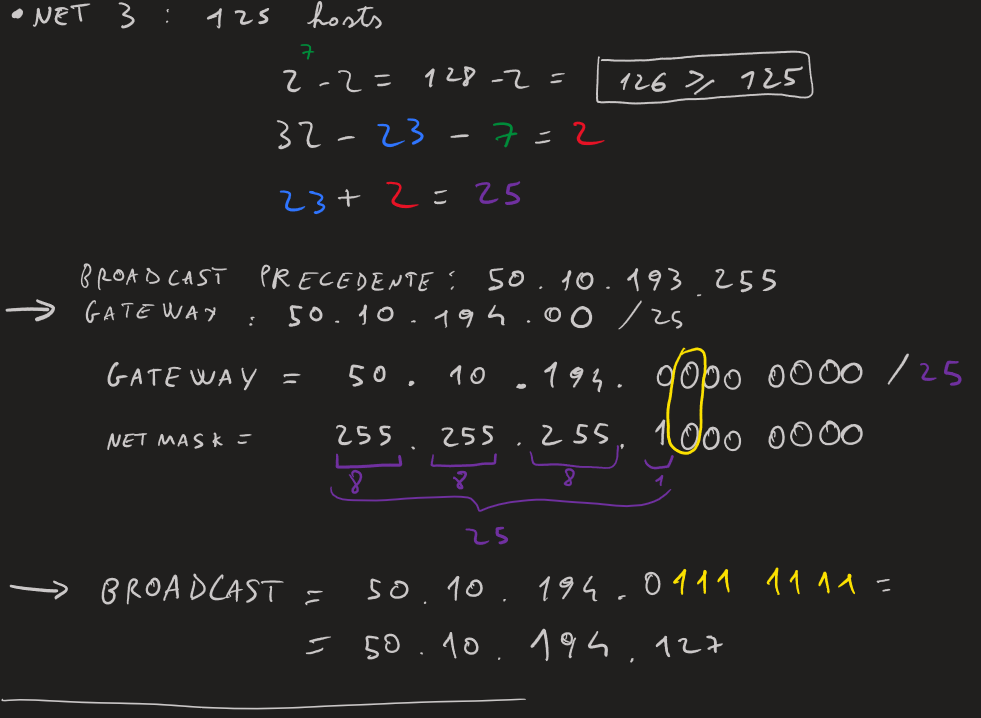 • NET 3 : 125 hosts
2^7 - 2 = 128 - 2 = 126 ⩾ 125
32 - 23 - 7 = 2
23 + 2 = 25
BROADCAST PRECEDENTE : 50 . 10 . 193 . 255
→ GATEWAY : 50 . 10 . 194 . 00 / 25
GATEWAY = 50 . 10 . 194 . 0000 0000 / 25
NETMASK = 255 . 255 . 255 . 1000 0000
8 8 8 1
25
→ BROADCAST = 50 . 10 . 194 . 0111 1111 =
= 50 . 10 . 194 . 127